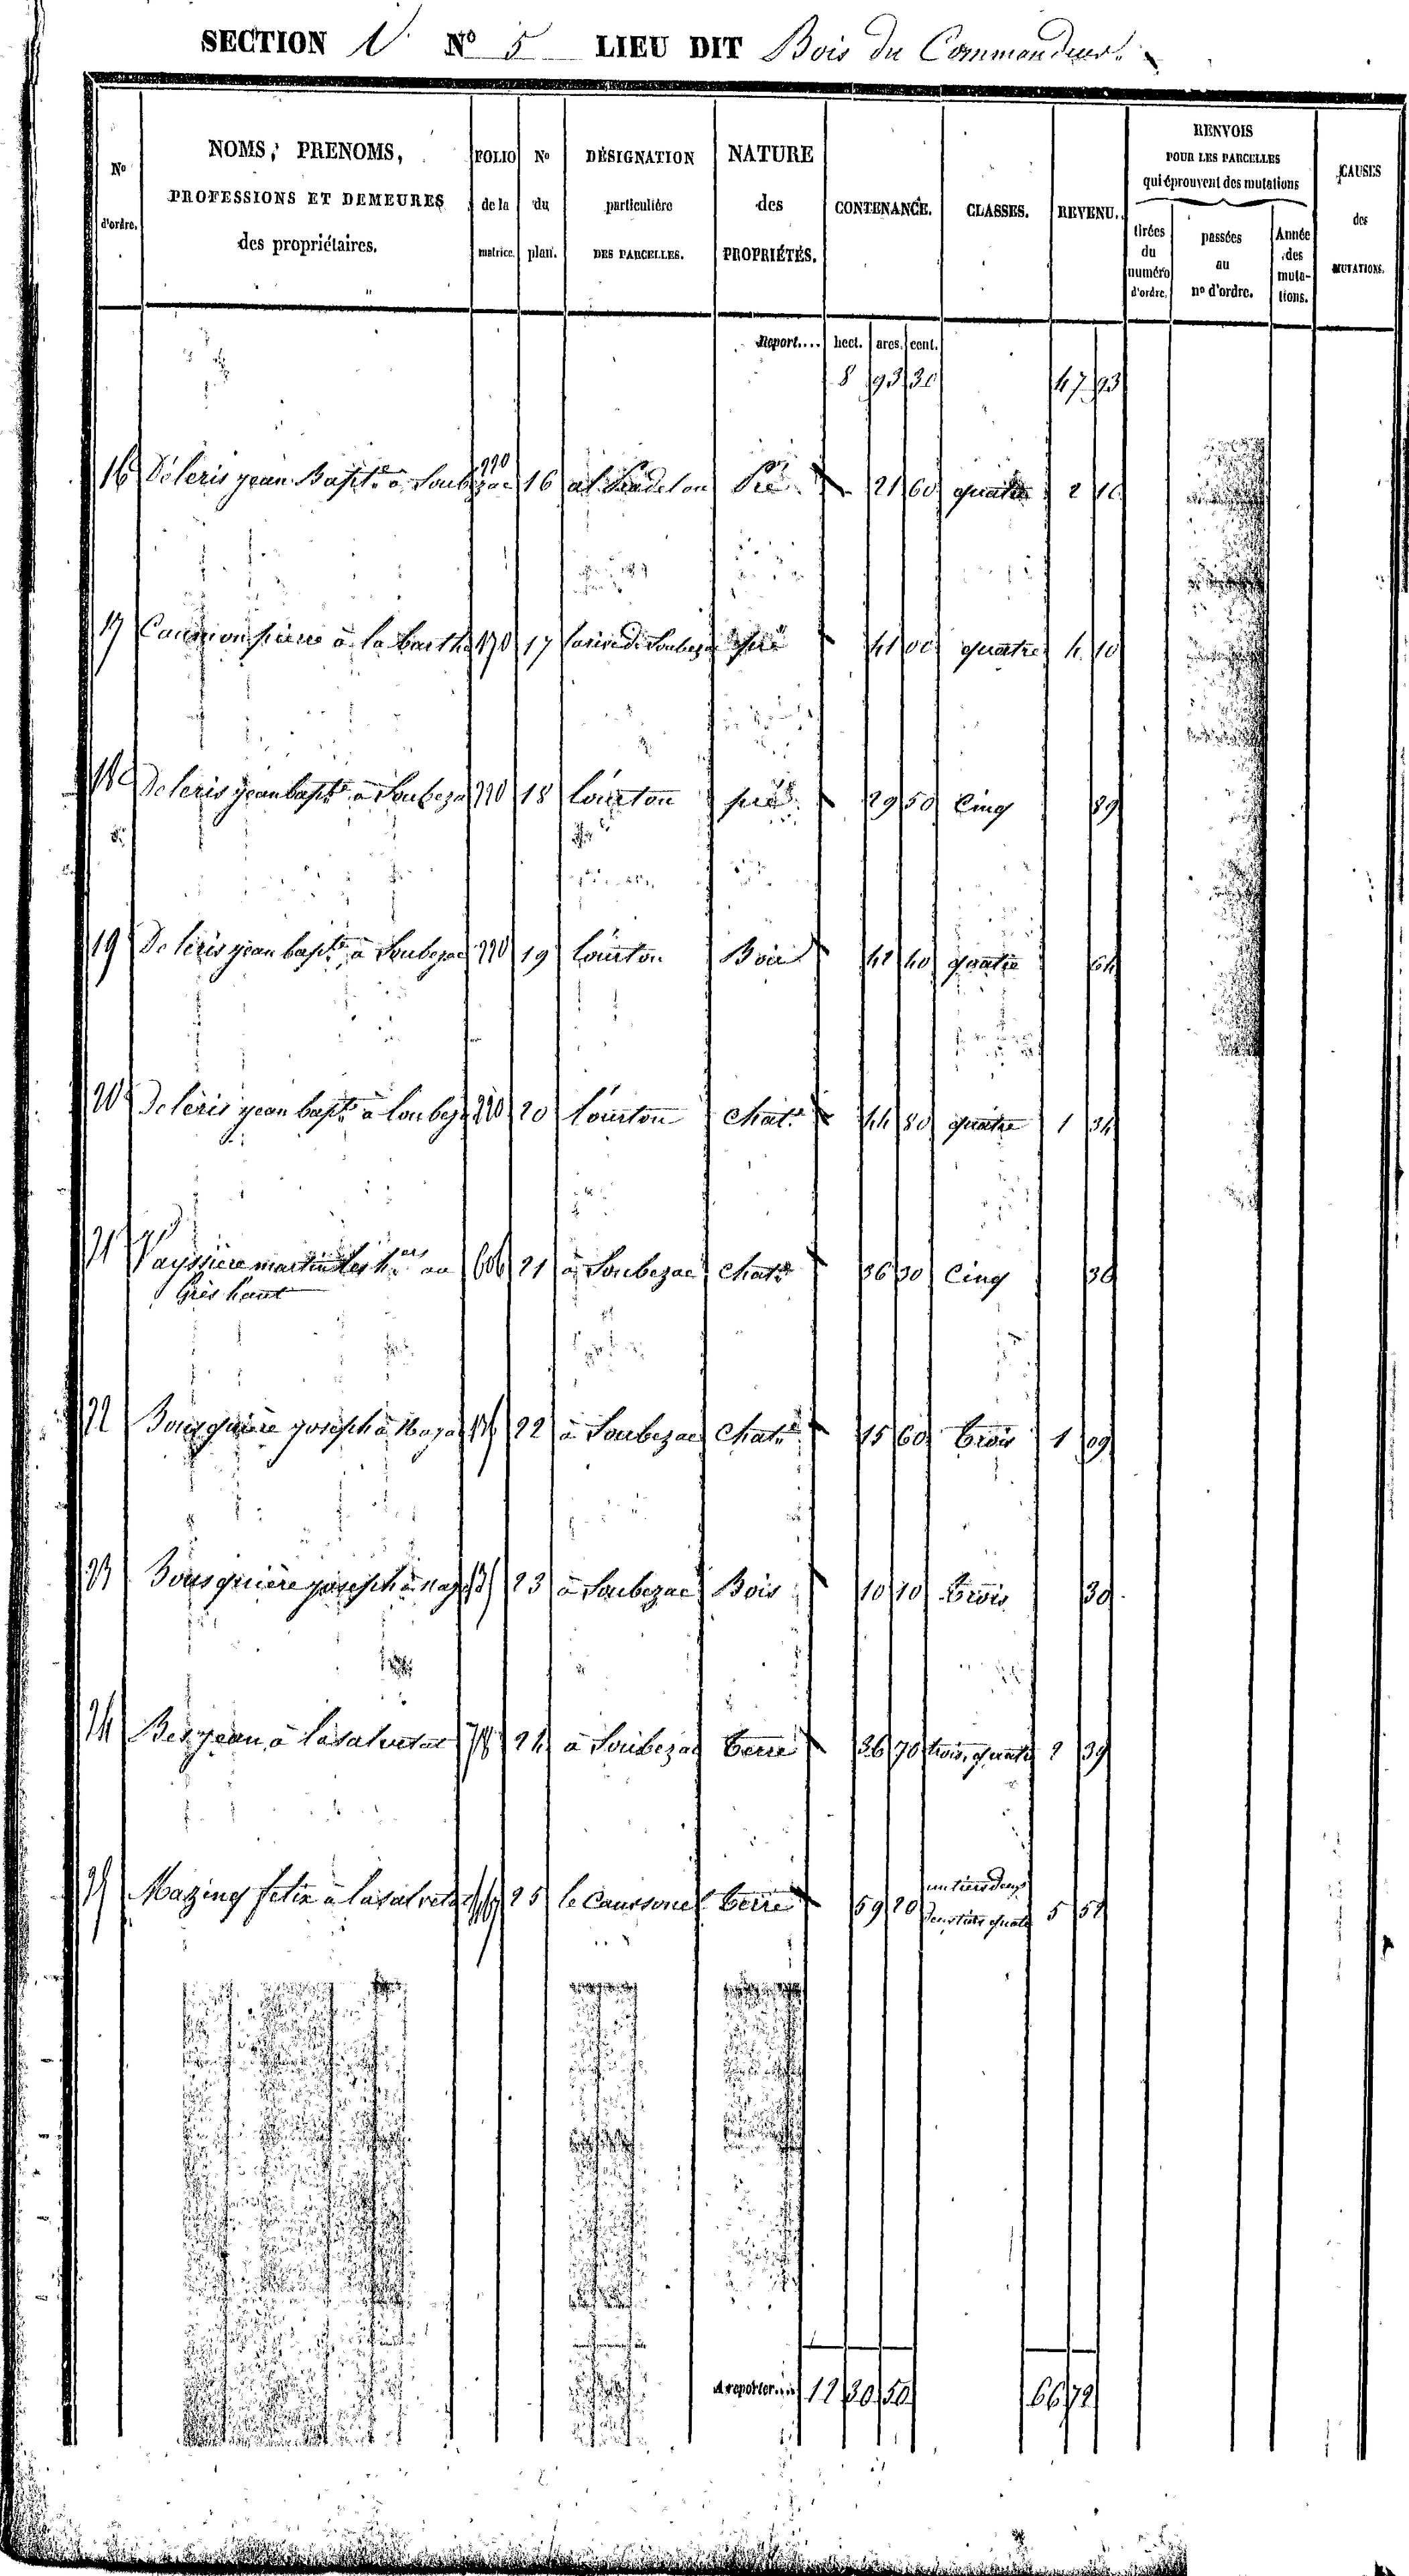 SECTION V N° 5 LIEU DIT Bois du Commandeur.
N° d'ordre. NOMS, PRENOMS, PROFESSIONS ET DEMEURES des propriétaires. FOLIO de la matrice. N° du plan. DÉSIGNATION particulière DES PARCELLES. NATURE des PROPRIÉTÉS. CONTENANCE. CLASSES. REVENU. RENVOIS POUR LES PARCELLES qui éprouvent des mutations tirées du numéro d'ordre. passées au n° d'ordre. Année des mutations. CAUSES des MUTATIONS.
Report.... hect. ares. cent.
8 93 30 47 93
16 Deleris jean Bapte à Soubezac 220 16 al Pré 21 60 quatre 2 16
17 pierre à la barthe 170 17 la rive de Soubezac pré 41 00 quatre 4 10
18 Deleris jean bapte à Soubezac 220 18 Lourtou pré 29 50 Cinq 89
19 Deleris jean bapte à Soubezac 220 19 Lourtou Bois 42 40 quatre 64
20 Deleris jean bapte à Soubezac 220 20 Lourtou Chat. 44 80 quatre 1 34
21 Vayssière martin les hers au 606 21 à Soubezac Chat. 36 30 Cinq 36
Grès haut
22 Bousquière joseph à 22 à Soubezac Chat. 15 60 trois 1 09
23 Bousquière joseph à 23 à Soubezac Bois 10 10 trois 30
24 Bes jean à lasalvetat 78 24 à Soubezac terre 36 70 trois, quatre 2 39
25 Mazinq felix à lasalvetat 25 le Caussonel terre 59 20 un tiers deux 5 52
deux tiers quatre
A reporter.... 12 30 50 66 72